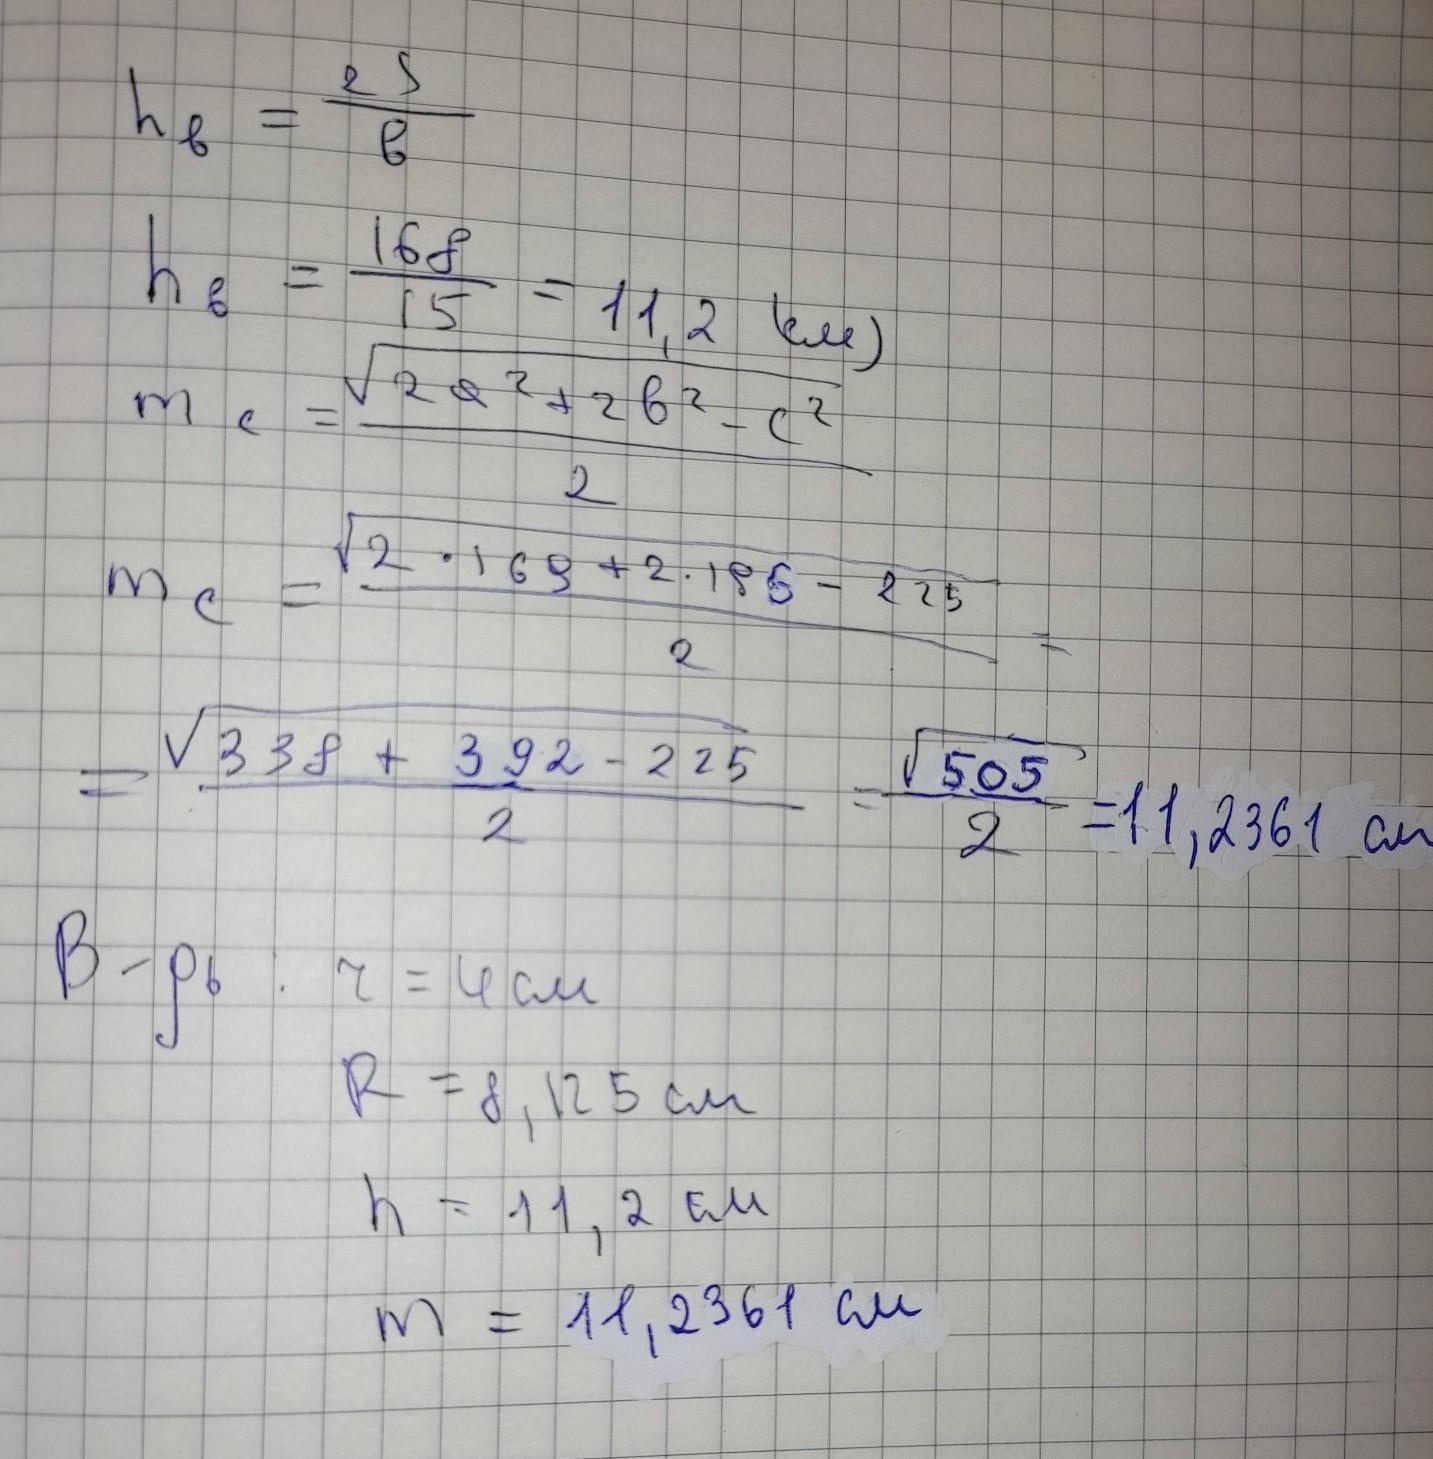 h_в = 2S/в
h_в = 168/15 = 11,2 (см)
m_c = √(2a² + 2в² - c²)/2
m_c = √(2 · 169 + 2 · 196 - 225)/2 =
= √(338 + 392 - 225)/2 = √505/2 = 11,2361 см
В-рь : r = 4 см
R = 8,125 см
h = 11,2 см
m = 11,2361 см